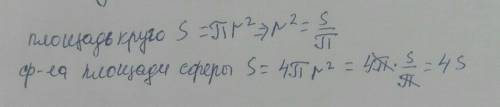 площадь круга S = πr² ⇒ r² = S/π
ф-ла площади сферы S = 4πr² = 4π · S/π = 4S